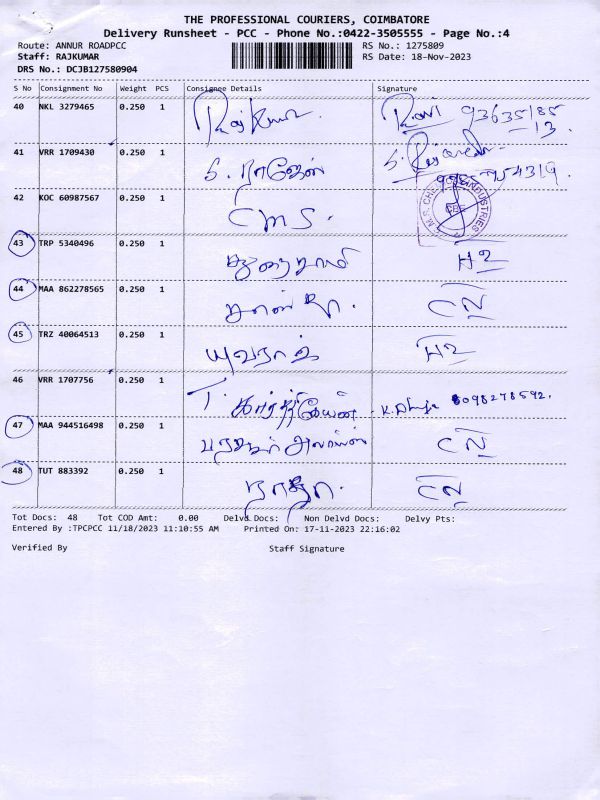 THE PROFESSIONAL COURIERS, COIMBATORE
Delivery Runsheet - PCC - Phone No.:0422-3505555 - Page No.:4
Route: ANNUR ROADPCC RS No.: 1275809
Staff: RAJKUMAR RS Date: 18-Nov-2023
DRS No.: DCJB127580904
S No Consignment No Weight PCS Consignee Details Signature
40 NKL 3279465 0.250 1 Rajkumar Ravi 93635185
13
41 VRR 1709430 0.250 1 S. ராஜேஸ் S.
42 KOC 60987567 0.250 1 CMS. INDUSTRIES
43 TRP 5340496 0.250 1 துரைசாமி H2
44 MAA 862278565 0.250 1 CN
45 TRZ 40064513 0.250 1 யுவராஜ் H2
46 VRR 1707756 0.250 1 T. கார்த்திகேயன் K. 8098278592.
47 MAA 944516498 0.250 1 CN
48 TUT 883392 0.250 1 ராஜா. CN
Tot Docs: 48 Tot COD Amt: 0.00 Delvd Docs: Non Delvd Docs: Delvy Pts:
Entered By :TPCPCC 11/18/2023 11:10:55 AM Printed On: 17-11-2023 22:16:02
Verified By Staff Signature